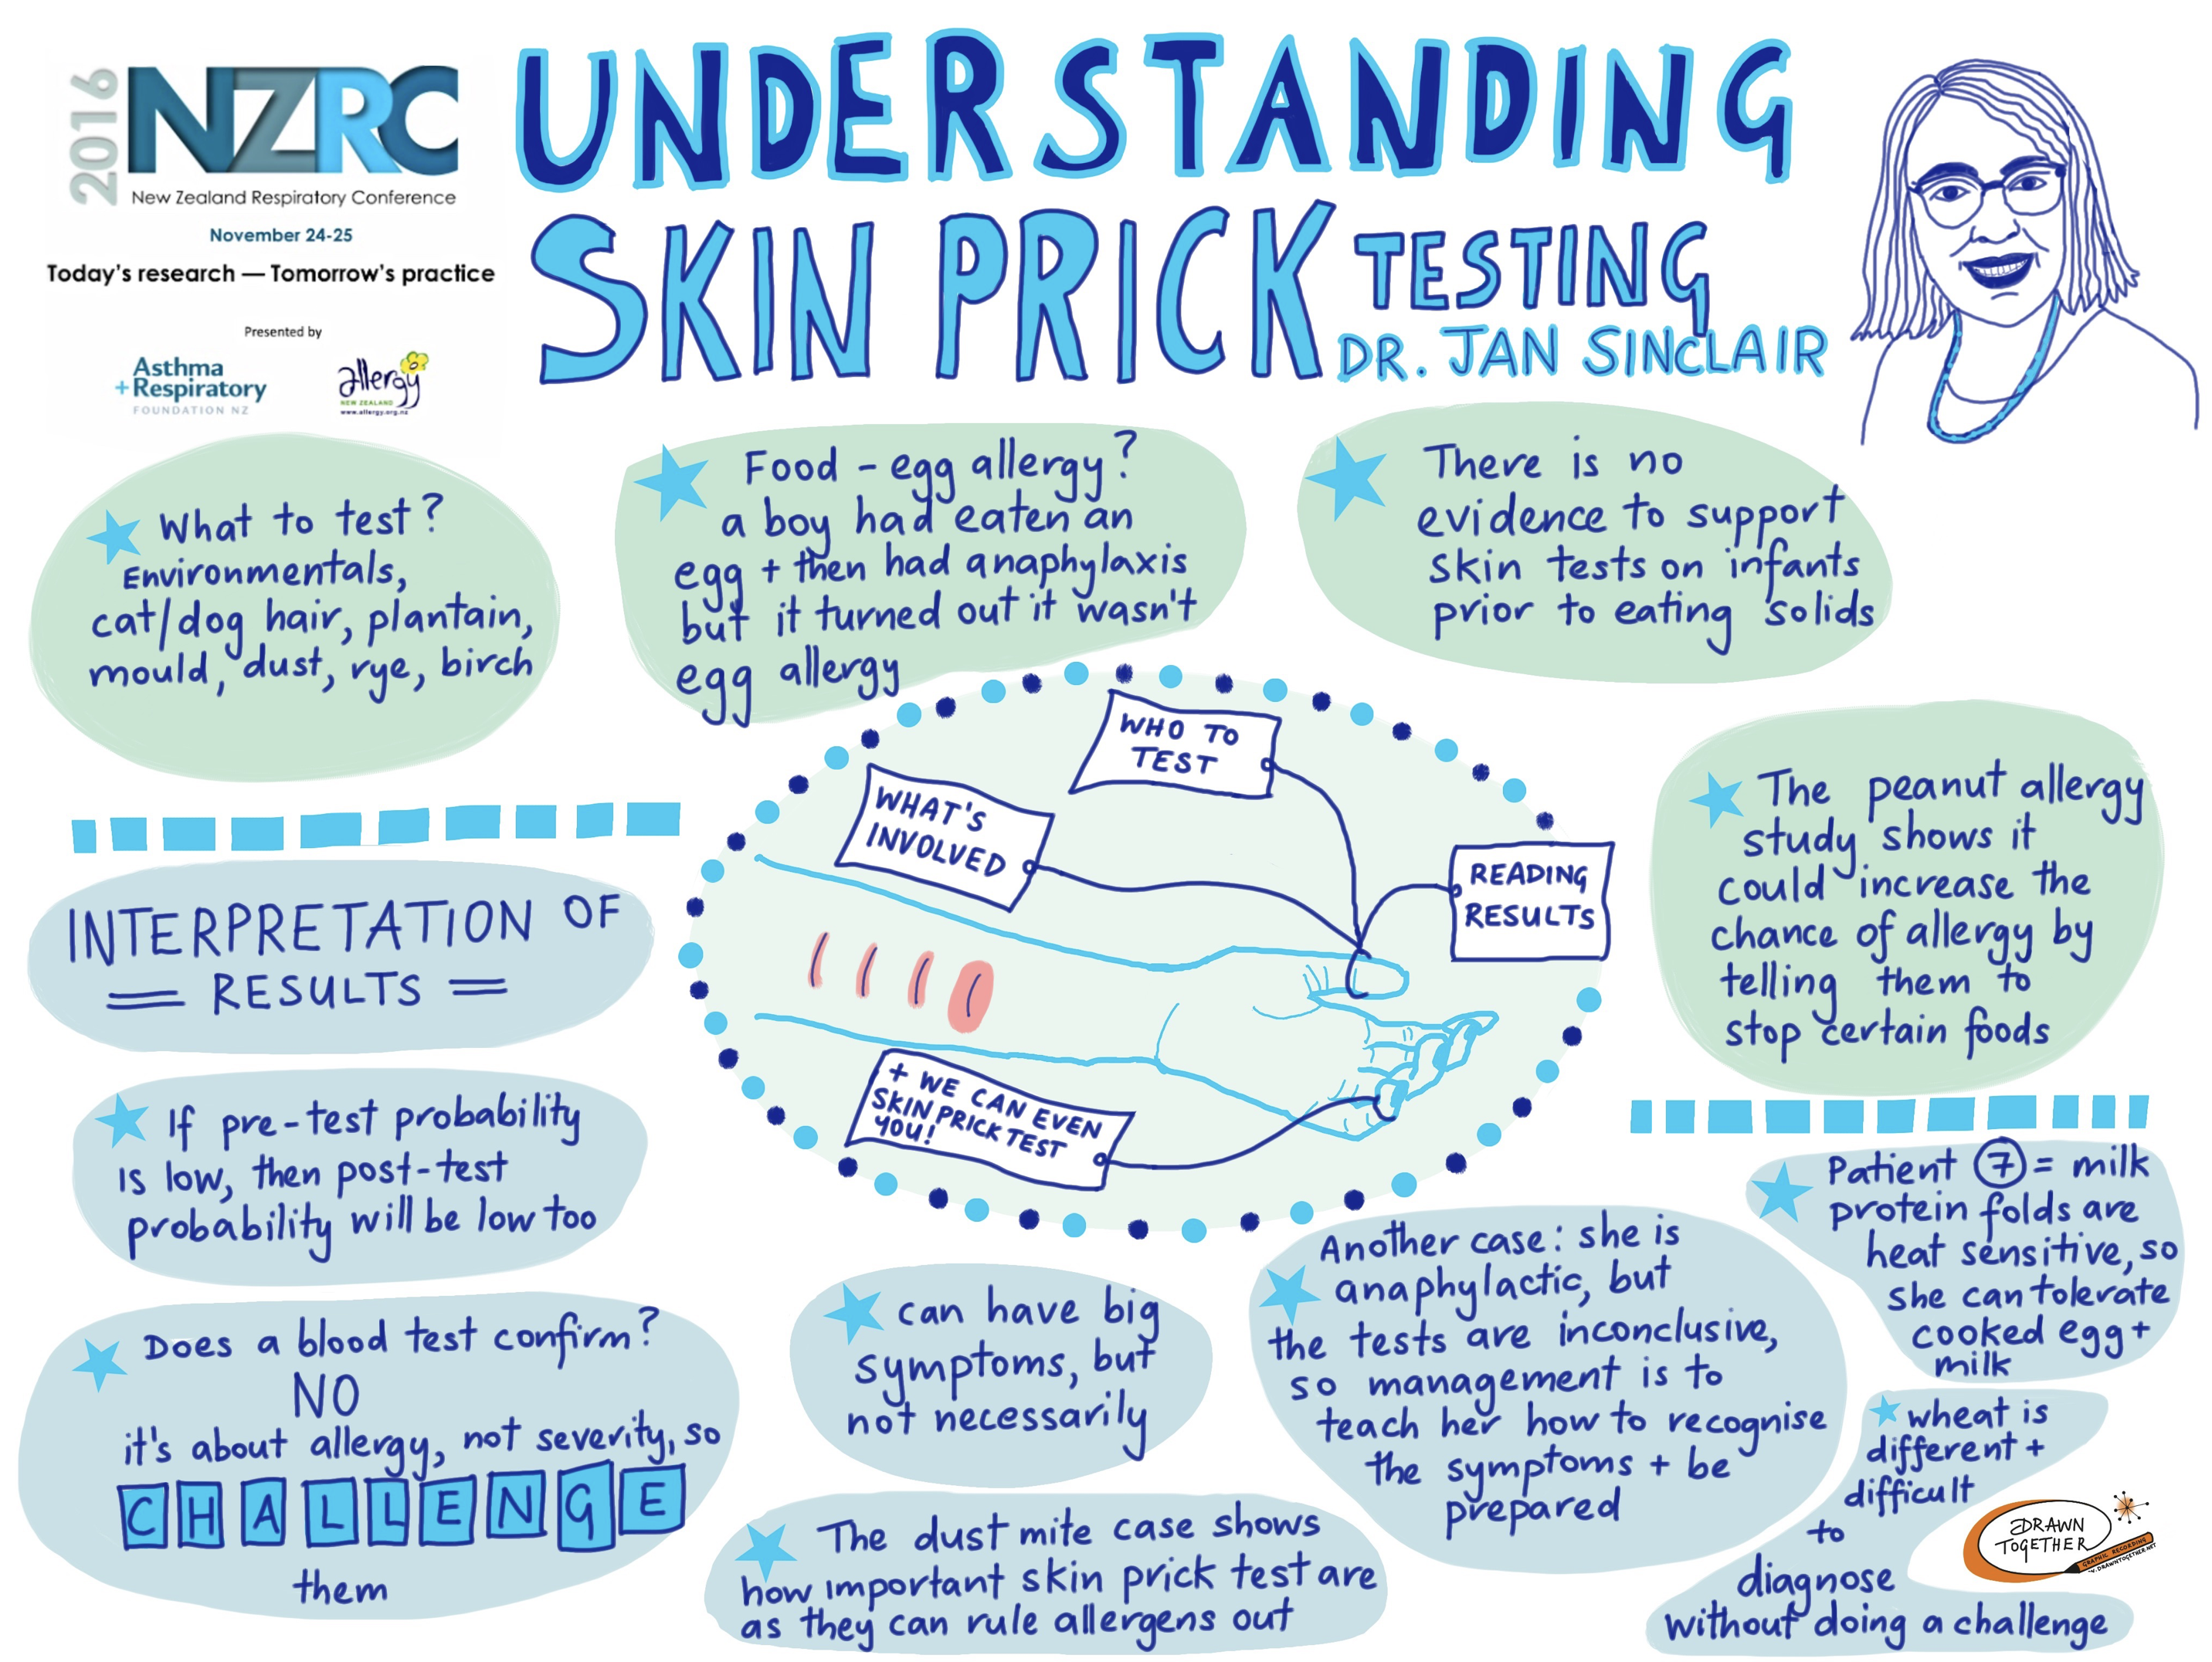 2016
NZRC
New Zealand Respiratory Conference
November 24-25
Today's research — Tomorrow's practice
Presented by
Asthma
+Respiratory
FOUNDATION NZ
allergy
NEW ZEALAND
www.allergy.org.nz
UNDERSTANDING
SKIN PRICK TESTING
DR. JAN SINCLAIR
What to test?
Environmentals,
cat/dog hair, plantain,
mould, dust, rye, birch
Food - egg allergy?
a boy had eaten an
egg + then had anaphylaxis
but it turned out it wasn't
egg allergy
There is no
evidence to support
skin tests on infants
prior to eating solids
WHO TO
TEST
WHAT'S
INVOLVED
READING
RESULTS
+ WE CAN EVEN
SKIN PRICK TEST
YOU!
The peanut allergy
study shows it
could increase the
chance of allergy by
telling them to
stop certain foods
INTERPRETATION OF
= RESULTS =
If pre-test probability
is low, then post-test
probability will be low too
Does a blood test confirm?
NO
it's about allergy, not severity, so
CHALLENGE
them
can have big
symptoms, but
not necessarily
The dust mite case shows
how important skin prick test are
as they can rule allergens out
Another case: she is
anaphylactic, but
the tests are inconclusive,
so management is to
teach her how to recognise
the symptoms + be
prepared
Patient 7 = milk
protein folds are
heat sensitive, so
she can tolerate
cooked egg +
milk
wheat is
different +
difficult
to
diagnose
without doing a challenge
DRAWN
TOGETHER
GRAPHIC RECORDING
WWW.DRAWNTOGETHER.NET